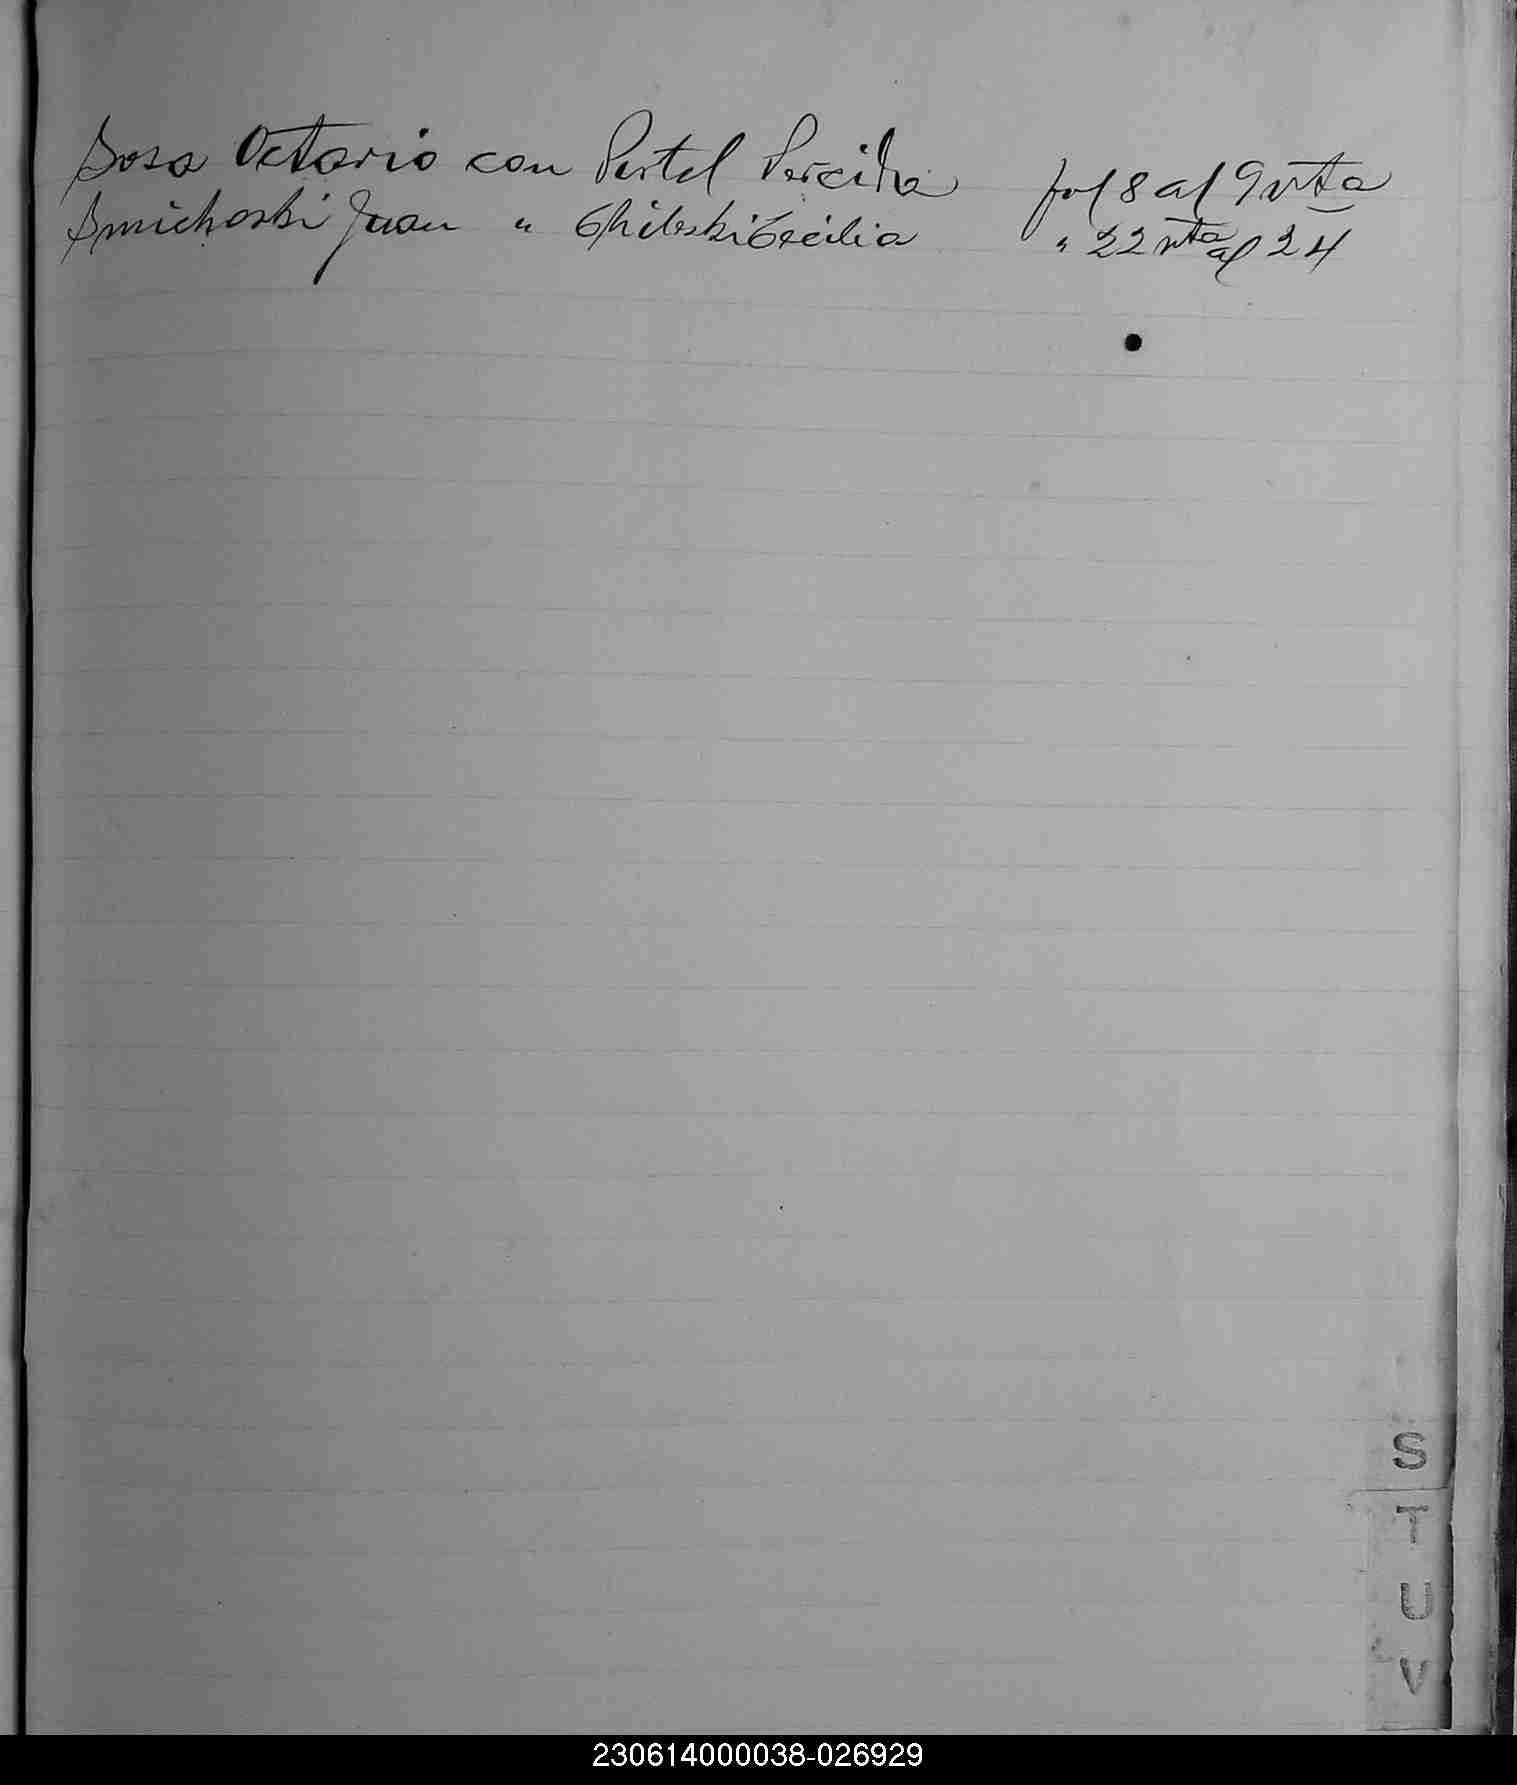 Sosa Octavio con Pertel Percida fol 8 al 9 vta
Smichoski Juan " Chileski Cecilia " 22 vta al 24
S
T
U
V
230614000038-026929